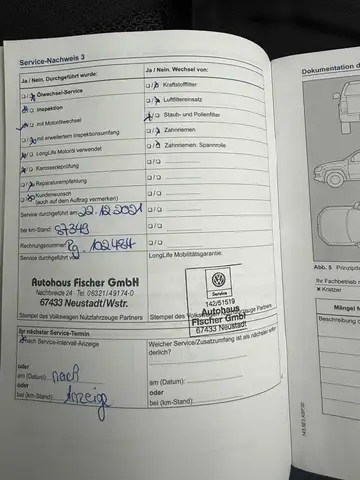 Service-Nachweis 3
Ja / Nein. Durchgeführt wurde:
Ölwechsel-Service
Inspektion
mit Motorölwechsel
mit erweitertem Inspektionsumfang
LongLife Motoröl verwendet
Karosserieprüfung
Reparaturempfehlung
Kundenwunsch
(auch auf dem Auftrag vermerken)
Service durchgeführt am: 22.12.2021
bei km-Stand: 87349
Rechnungsnummer: Rg. 102484
Service durchgeführt von:
Autohaus Fischer GmbH
Nachtweide 24 · Tel. 06321/49174-0
67433 Neustadt/Wstr.
Stempel des Volkswagen Nutzfahrzeuge Partners
Ihr nächster Service-Termin
nach Service-Intervall-Anzeige
oder
am (Datum): nach
oder
bei (km-Stand): Anzeige
Ja / Nein. Wechsel von:
Kraftstofffilter
Luftfiltereinsatz
Staub- und Pollenfilter
Zahnriemen
Zahnriemen, Spannrolle
LongLife Mobilitätsgarantie:
Service
142/51519
Autohaus
Fischer GmbH
67433 Neustadt
Stempel des Volkswagen Nutzfahrzeuge Partners
Welcher Service/Zusatzumfang ist als nächster erfor-
derlich?
am (Datum):
oder
bei (km-Stand):
Dokumentation d
Abb. 5 Prinzipd
Ihr Fachbetrieb
× Kratzer
Mängel
Beschreibung